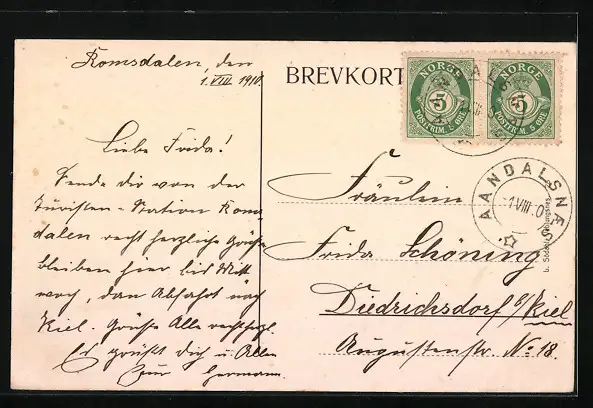 Romsdalen, den
1. VIII. 1910.
Liebe Frida!
Sende dir von der
Turisten-Station Roms
dalen recht herzliche Grüße
bleiben hier bis Mitt
woch, dan Abfahrt nach
Kiel. Grüße Alle rechtherzl.
Es grüßt dich u. Allen
Hermann
BREVKORT
NORGE
5
POSTFRIM. 5 ØRE
NORGE
5
POSTFRIM. 5 ØRE
AANDALSNES
1 VIII 10
Fräulein
Frida Schöning
Diedrichsdorf b/Kiel
Augustenstr. No 18.